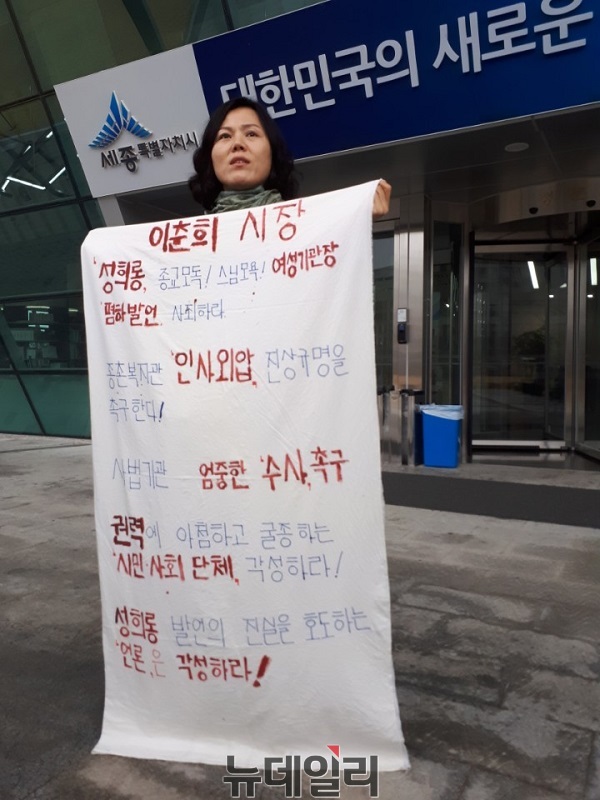 대한민국의 새로운
세종특별자치시
이춘희 시장
'성희롱, 종교모독! 스님모욕! 여성기관장
'폄하발언, 사죄하라.
종촌복지관 '인사외압, 진상규명을
촉구한다!
사법기관 엄중한 '수사, 촉구
권력에 아첨하고 굴종하는
'시민·사회 단체, 각성하라!
성희롱 발언의 진실을 호도하는
'언론,은 각성하라!
뉴데일리